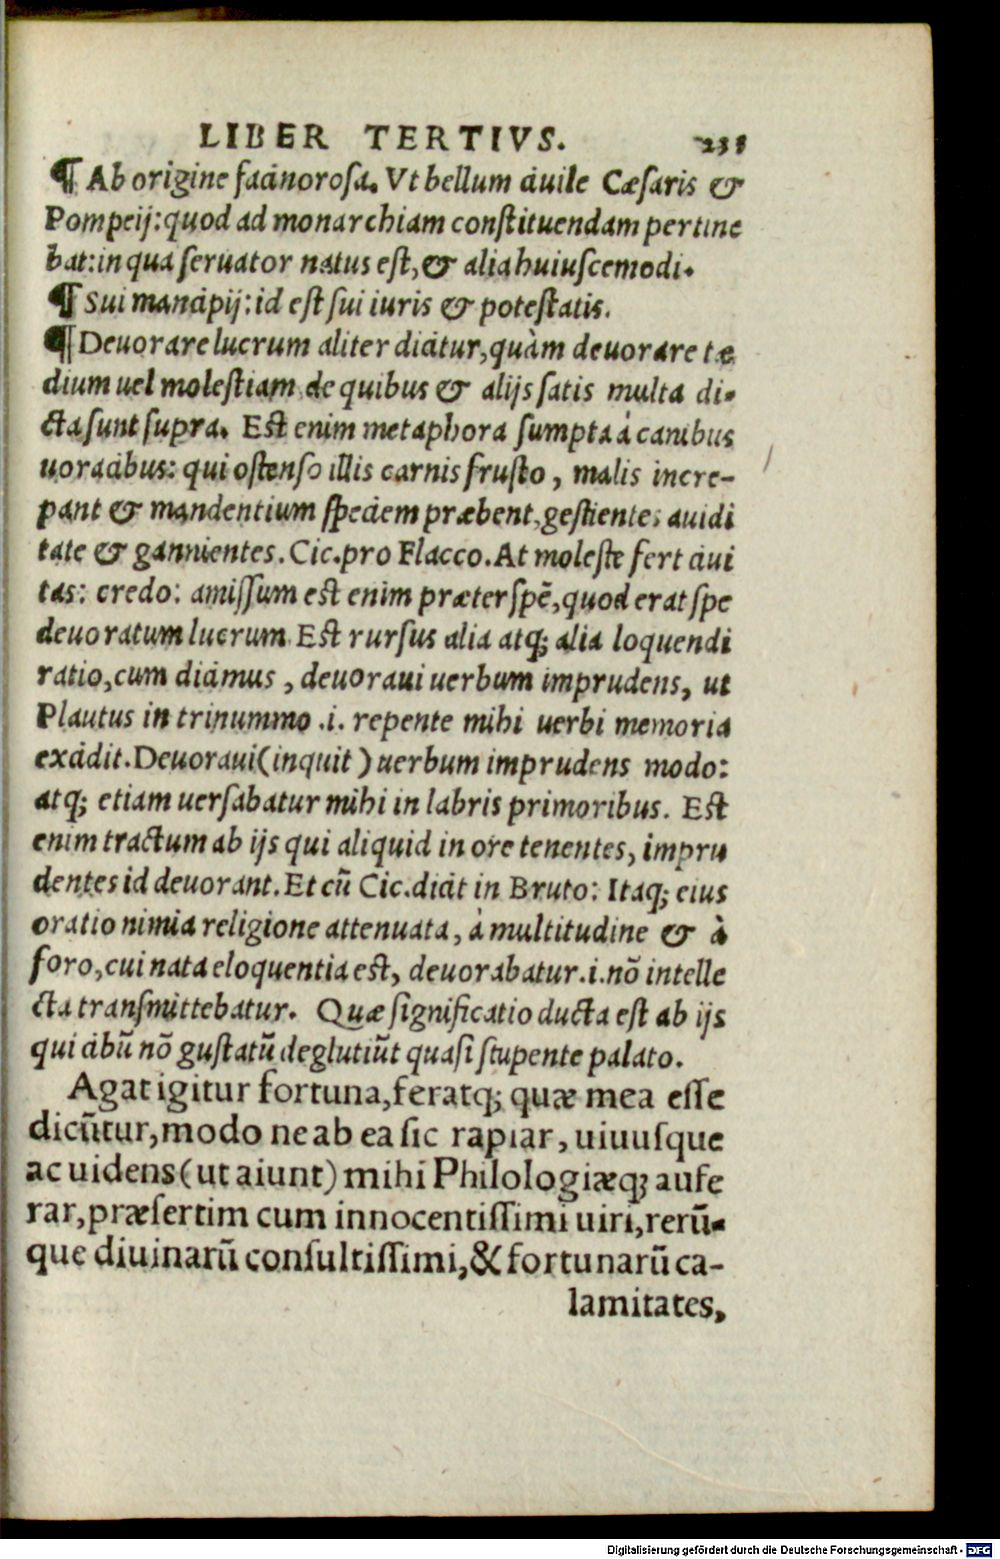 LIBER TERTIVS. 235
¶ Ab origine facinorosa. Vt bellum ciuile Cæsaris &
Pompeij: quod ad monarchiam constituendam pertine
bat: in qua seruator natus est, & alia huiuscemodi.
¶ Sui mancipij: id est sui iuris & potestatis.
¶ Deuorare lucrum aliter dicitur, quàm deuorare tæ
dium uel molestiam de quibus & alijs satis multa di-
cta sunt supra. Est enim metaphora sumpta à canibus
uoracibus: qui ostenso illis carnis frusto, malis incre-
pant & mandentium speciem præbent, gestientes auidi
tate & gannientes. Cic. pro Flacco. At moleste fert ciui
tas: credo: amissum est enim præter spē, quod erat spe
deuoratum lucrum. Est rursus alia atq; alia loquendi
ratio, cum dicimus, deuoraui uerbum imprudens, ut
Plautus in trinummo .i. repente mihi uerbi memoria
excidit. Deuoraui (inquit) uerbum imprudens modo:
atq; etiam uersabatur mihi in labris primoribus. Est
enim tractum ab ijs qui aliquid in ore tenentes, impru
dentes id deuorant. Et cū Cic. dicit in Bruto: Itaq; eius
oratio nimia religione attenuata, à multitudine & à
foro, cui nata eloquentia est, deuorabatur .i. nō intelle
cta transmittebatur. Quæ significatio ducta est ab ijs
qui cibū nō gustatū deglutiūt quasi stupente palato.
Agat igitur fortuna, feratq; quæ mea esse
dicūtur, modo ne ab ea sic rapiar, uiuusque
ac uidens (ut aiunt) mihi Philologiæq; aufe
rar, præsertim cum innocentissimi uiri, rerū-
que diuinarū consultissimi, & fortunarū ca-
lamitates,
Digitalisierung gefördert durch die Deutsche Forschungsgemeinschaft - DFG